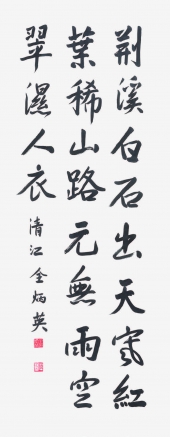 荊溪白石出天寒紅
葉稀山路元無雨空
翠濕人衣
清江全炳英